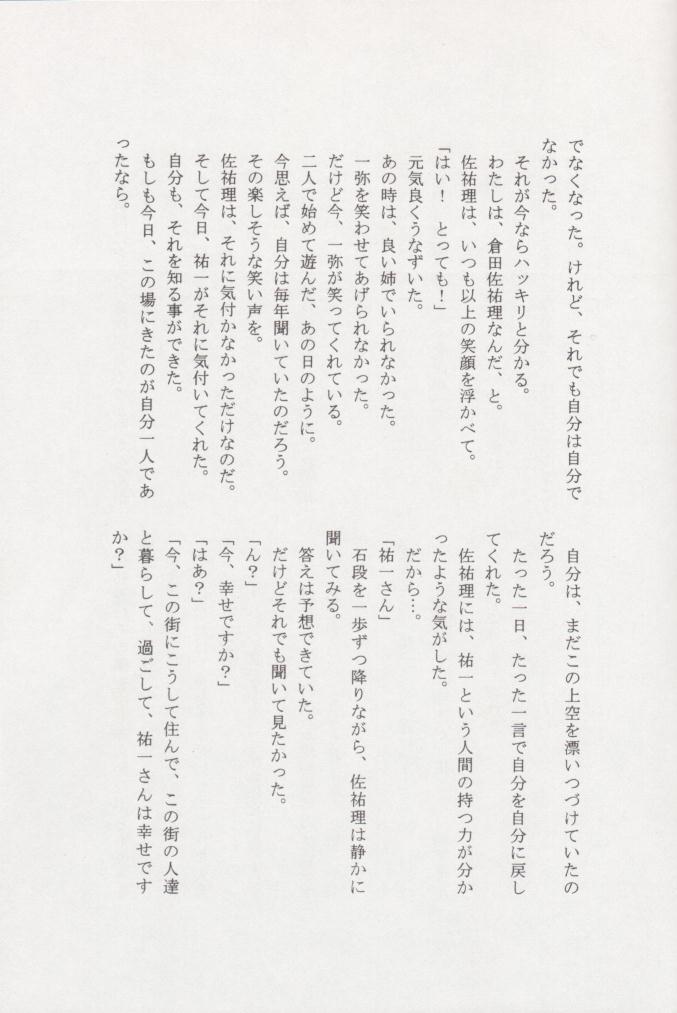 でなくなった。けれど、それでも自分は自分で
なかった。
それが今ならハッキリと分かる。
わたしは、倉田佐祐理なんだ、と。
佐祐理は、いつも以上の笑顔を浮かべて。
「はい！　とっても！」
元気良くうなずいた。
あの時は、良い姉でいられなかった。
一弥を笑わせてあげられなかった。
だけど今、一弥が笑ってくれている。
二人で始めて遊んだ、あの日のように。
今思えば、自分は毎年聞いていたのだろう。
その楽しそうな笑い声を。
佐祐理は、それに気付かなかっただけなのだ。
そして今日、祐一がそれに気付いてくれた。
自分も、それを知る事ができた。
もしも今日、この場にきたのが自分一人であ
ったなら。
自分は、まだこの上空を漂いつづけていたの
だろう。
たった一日、たった一言で自分を自分に戻し
てくれた。
佐祐理には、祐一という人間の持つ力が分か
ったような気がした。
だから…。
「祐一さん」
石段を一歩ずつ降りながら、佐祐理は静かに
聞いてみる。
答えは予想できていた。
だけどそれでも聞いて見たかった。
「ん？」
「今、幸せですか？」
「はあ？」
「今、この街にこうして住んで、この街の人達
と暮らして、過ごして、祐一さんは幸せです
か？」